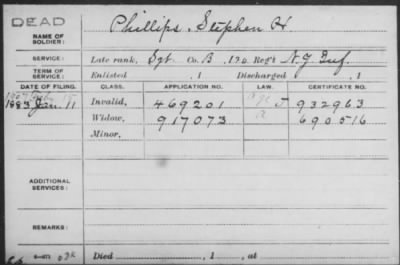 DEAD
NAME OF SOLDIER: Phillips, Stephen H.
SERVICE: Late rank, Sgt. Co. B, 120 Reg't N.Y. Inf.
TERM OF SERVICE: Enlisted , 1 Discharged , 1
DATE OF FILING. CLASS. APPLICATION NO. LAW. CERTIFICATE NO.
1883 Jan. 11 Invalid, 469201 J 932963
Widow, 917073 690516
Minor,
ADDITIONAL SERVICES:
REMARKS:
Died , 1 , at